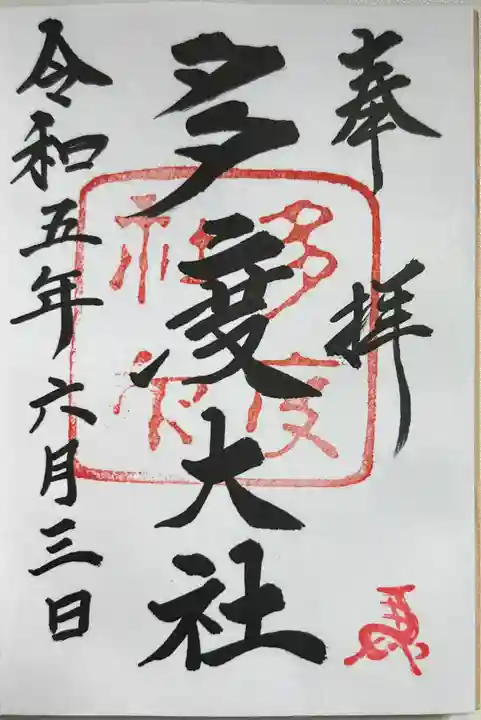 奉拝
多度大社
令和五年六月三日
多度
社印